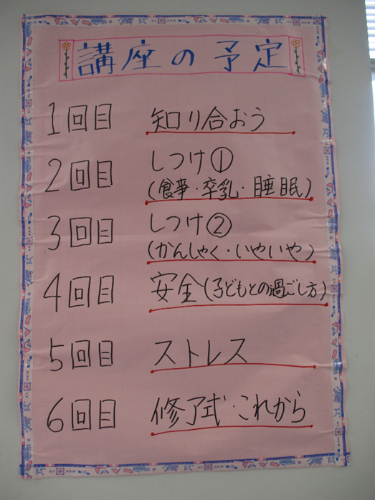 講座の予定
1回目 知り合おう
2回目 しつけ①
(食事・卒乳・睡眠)
3回目 しつけ②
(かんしゃく・いやいや)
4回目 安全(子どもとの過ごし方)
5回目 ストレス
6回目 修了式・これから